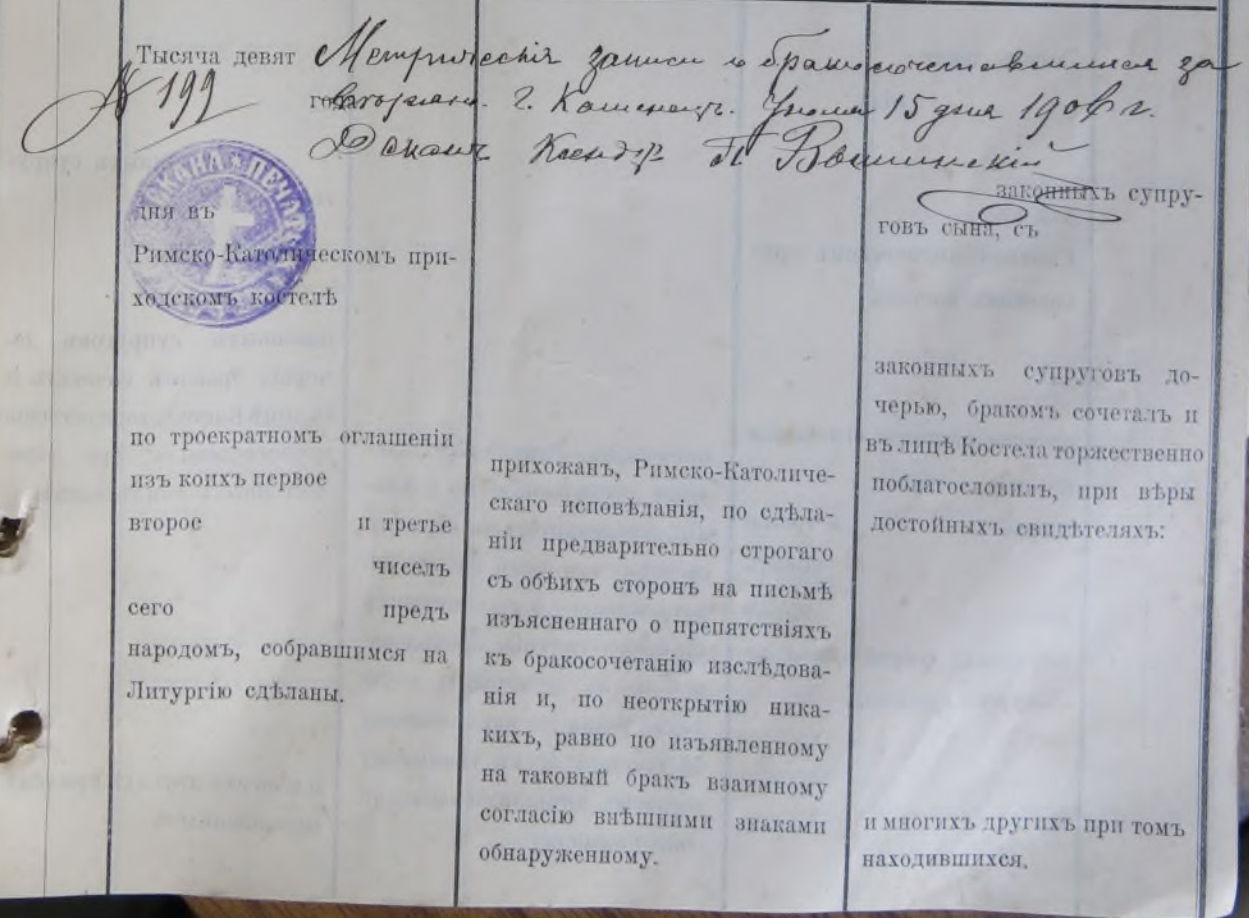 Тысяча девят Метрическія записи о бракосочетавшихся за
№ 199
г. Каменецъ. 15 дня 190 г.
Деканъ Ксендзъ
ДЕКАНА ★ ПЕЧАТЬ
дня въ
Римско-Католическомъ при-
ходскомъ костелѣ
по троекратномъ оглашеніи
изъ коихъ первое
второе и третье
чиселъ
сего предъ
народомъ, собравшимся на
Литургію сдѣланы.
прихожанъ, Римско-Католиче-
скаго исповѣданія, по сдѣла-
ніи предварительно строгаго
съ обѣихъ сторонъ на письмѣ
изъясненнаго о препятствіяхъ
къ бракосочетанію изслѣдова-
нія и, по неоткрытію ника-
кихъ, равно по изъявленному
на таковый бракъ взаимному
согласію внѣшними знаками
обнаруженному.
законныхъ супру-
говъ сына, съ
законныхъ супруговъ до-
черью, бракомъ сочеталъ и
въ лицѣ Костела торжественно
поблагословилъ, при вѣры
достойныхъ свидѣтеляхъ:
и многихъ другихъ при томъ
находившихся.